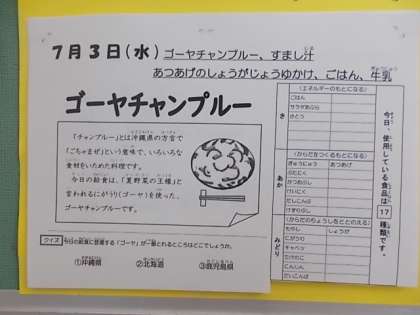 7月3日(水) ゴーヤチャンプルー、すまし汁
あつあげのしょうがじょうゆかけ、ごはん、牛乳
ゴーヤチャンプルー
「チャンプルー」とは沖縄県の方言で
「ごちゃまぜ」という意味で、いろいろな
食材をいためた料理です。
今日の給食は、「夏野菜の王様」と
言われるにがうり(ゴーヤ)を使った、
ゴーヤチャンプルーです。
クイズ 今日の給食に登場する「ゴーヤ」が一番とれるところはどこでしょうか。
①沖縄県 ②北海道 ③鹿児島県
今日、使用している食品は 17 種類です。
(エネルギーのもとになる)
き
ごはん
サラダあぶら
さとう
(からだをつくるもとになる)
あか
ぎゅうにゅう あつあげ
ぶたにく
かつおぶし
けいにく
だしこんぶ
けずりぶし
(からだのちょうしをととのえる)
みどり
もやし しょうが
にがうり
キャベツ
たけのこ
にんじん
だいこんば